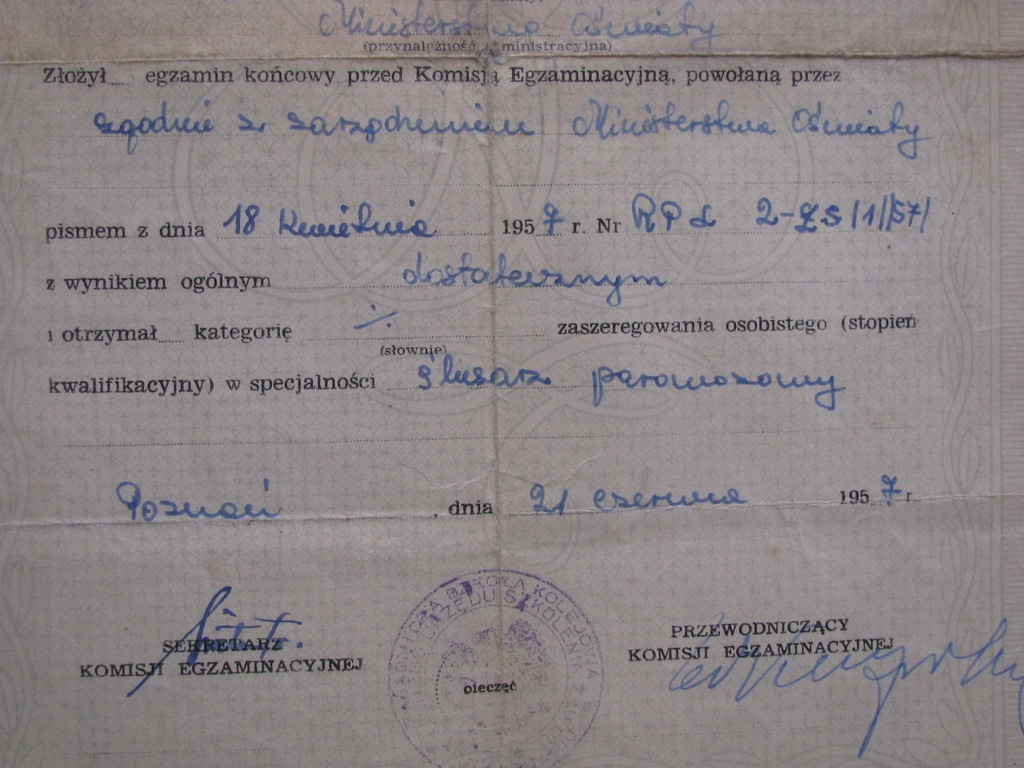 Ministerstwa Oświaty
(przynależność administracyjna)
Złożył.... egzamin końcowy przed Komisją Egzaminacyjną, powołaną przez
zgodnie z zarządzeniem Ministerstwa Oświaty
pismem z dnia 18 kwietnia 1957 r. Nr RPd 2-ZS/1/57/
z wynikiem ogólnym dostatecznym
i otrzymał.... kategorię -/. zaszeregowania osobistego (stopień
(słownie)
kwalifikacyjny) w specjalności ślusarz parowozowy
Poznań, dnia 21 czerwca 1957 r.
SEKRETARZ
KOMISJI EGZAMINACYJNEJ
PRZEWODNICZĄCY
KOMISJI EGZAMINACYJNEJ
pieczęć
SZKOŁA KOLEJOWA
URZĘDU SZKOLENIA